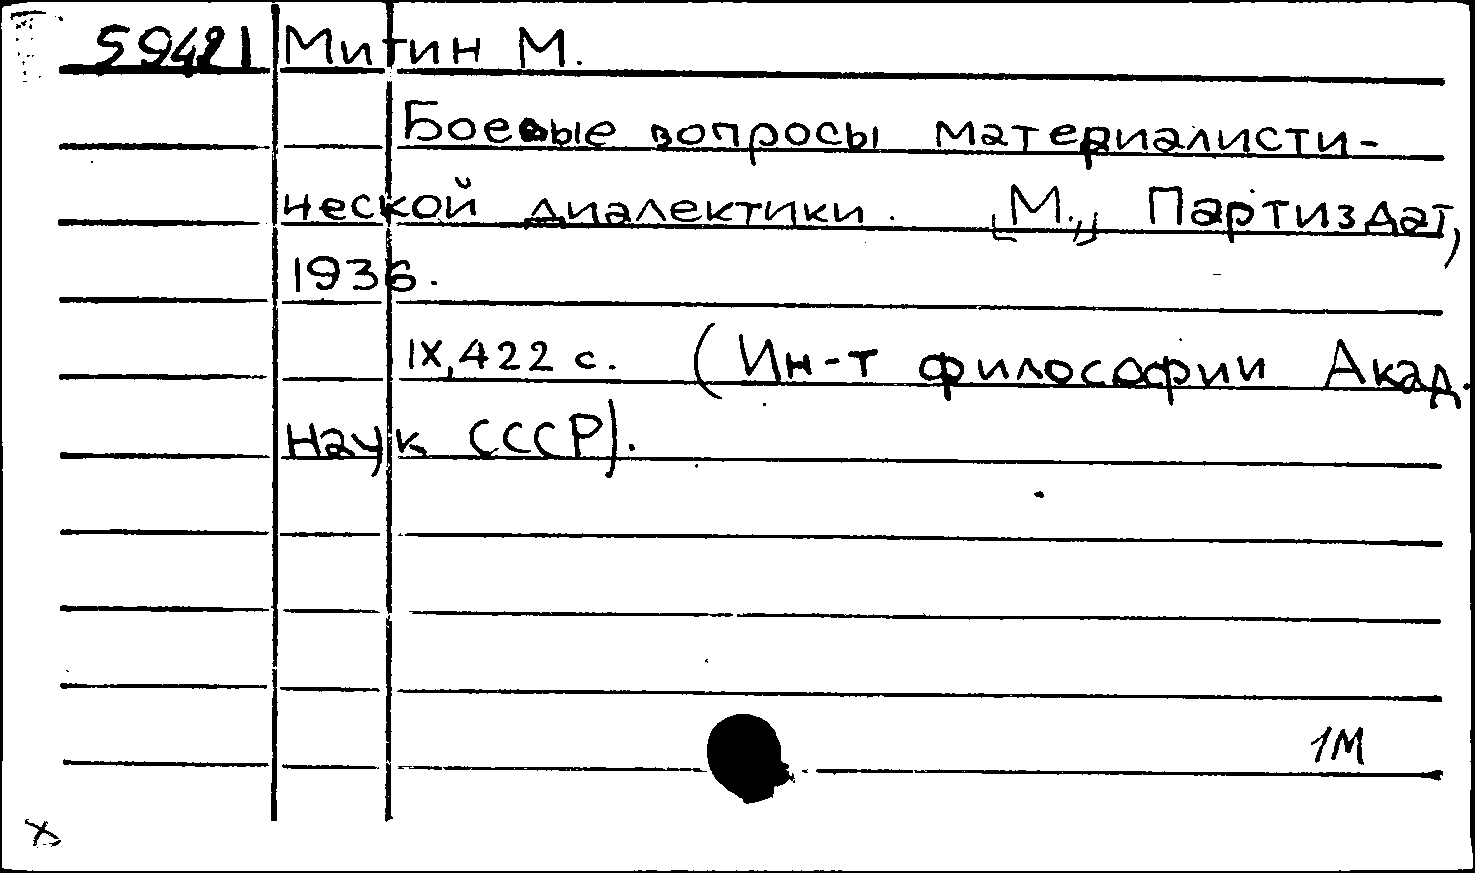 59421 Митин М.
Боевые вопросы материалисти-
ческой диалектики. [М.,] Партиздат,
1936.
IX, 422 с. (Ин-т философии Акад.
наук СССР).
1М